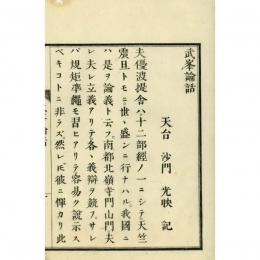 武峯論話
天台　沙門　光映　記
夫優波提舎ハ十二部經ノ一ニシテ天竺
震旦トモニ世ニ盛ンニ行ナハル我國ニ
ハ是ヲ論義ト云フ南都北嶺寺門山門夫
レ夫レ立義アリテ各義辯ヲ競フサレ
ハ規矩準繩モ習ヒアリテ容易ク說示ス
ベキコトニ非ラズ然レ𪜈彼ニ憚カリ此